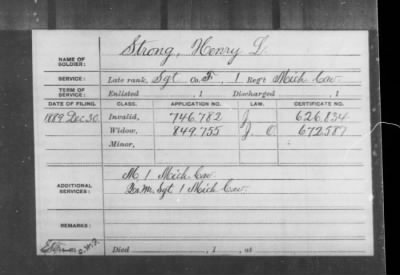 NAME OF SOLDIER: Strong, Henry L.
SERVICE: Late rank, Sgt Co. F, 1 Reg't Mich Cav
TERM OF SERVICE: Enlisted , 1 Discharged , 1
DATE OF FILING. CLASS. APPLICATION NO. LAW. CERTIFICATE NO.
1889 Dec. 30 Invalid, 746.782 J 626.834
Widow, 849.755 J. O. 672587
Minor,
ADDITIONAL SERVICES: M, 1 Mich Cav
Qr. M. Sgt 1 Mich Cav
REMARKS:
Died , 1 , at